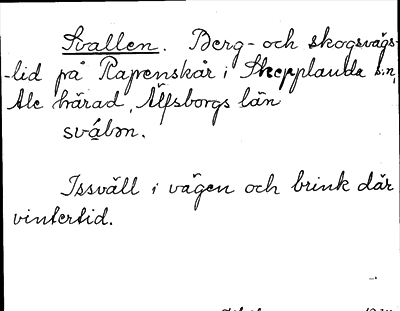 Svallen. Berg- och skogsvägs-
-lid på Rapenskår i Skepplanda s:n,
Ale härad, Älfsborgs län
sválən.
Issväll i vägen och brink där
vintertid.